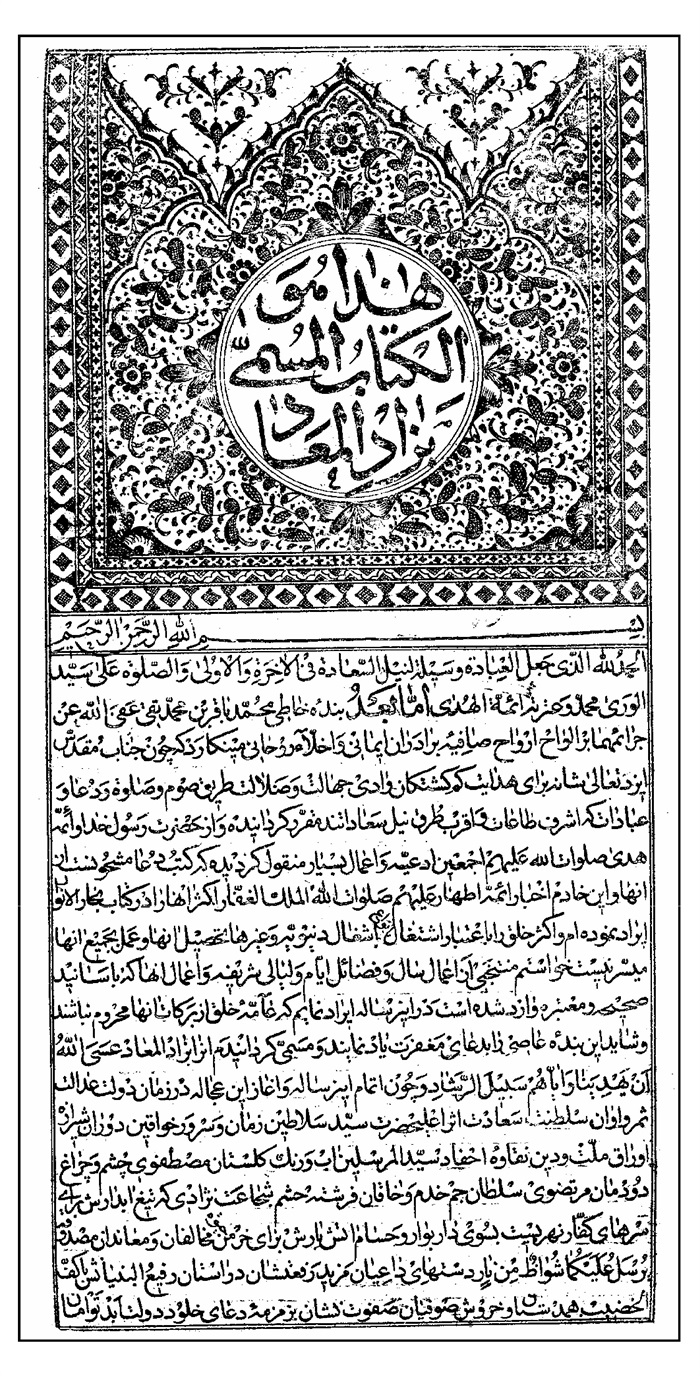 هذا هو
الكتاب المسمى
بزاد المعاد
بسم الله الرحمن الرحيم
الحمد لله الذى جعل العبادة وسيلة لنيل السعادة فى الاخرة والاولى والصلوة على سيد
الورى محمد وعترته ائمة الهدى اما بعد بنده خاطى محمد باقر بن محمد تقى عفى الله عن
جرائمهما بر الواح ارواح صافيه برادران ايمانى واخلاء روحانى مينكارد كه چون جناب مقدس
ايزد تعالى شانه براى هدايت كم كشتكان وادى جهالت وضلالت طريق صوم وصلوة ودعا و
عبادات كه اشرف طاعات واقرب طرق نيل سعاداتند مقرر كردانيده واز حضرت رسول خدا وائمه
هدى صلوات الله عليهم اجمعين ادعيه واعمال بسيار منقول كرديده كه كتب دعا مشحونست از
انها واين خادم اخبار ائمه اطهار عليهم صلوات الله الملك الغفار اكثر انها را در كتاب بحار الانوار
ايراد نموده ام واكثر خلق را باعتبار اشتغال باشغال دنيويه وغيرها تحصيل انها وعمل بجميع انها
ميسر نيست خواستم منتخبى از اعمال سال وفضائل ايام وليالى شريفه واعمال انها كه باسانيد
صحيحه ومعتبره وارد شده است در اين رساله ايراد نمايم كه عامه خلق از بركات انها محروم نباشند
وشايد اين بنده عاصى را بدعاى مغفرت ياد نمايند ومسمى كردانيدم انرا بزاد المعاد عسى الله
ان يهدينا واياهم سبيل الرشاد وچون اتمام اين رساله واغاز اين عجاله در زمان دولت عدالت
ثمر واوان سلطنت سعادت اثر اعليحضرت سيد سلاطين زمان وسرور خواقين دوران شيرازه
اوراق ملت ودين نقاوه احفاد سيد المرسلين اب ورنك كلستان مصطفوى چشم وچراغ
دودمان مرتضوى سلطان جم خدم وخاقان فرشته حشم شجاعت نژادى كه تيغ ابدارش براى
سرهاى كفار نهريست بسوى دار بوار وحسام اتش بارش براى خرمن مخالفان ومعاندان مصدوقه
يرسل عليكما شواظ من نار دستهاى داعيان مزيد رفعتشان در استان رفيع البنيانش با كف
الخضيب همدستان وخروش صوفيان صفوت نشان بزمزمه دعاى خلود دولت ابد توامان